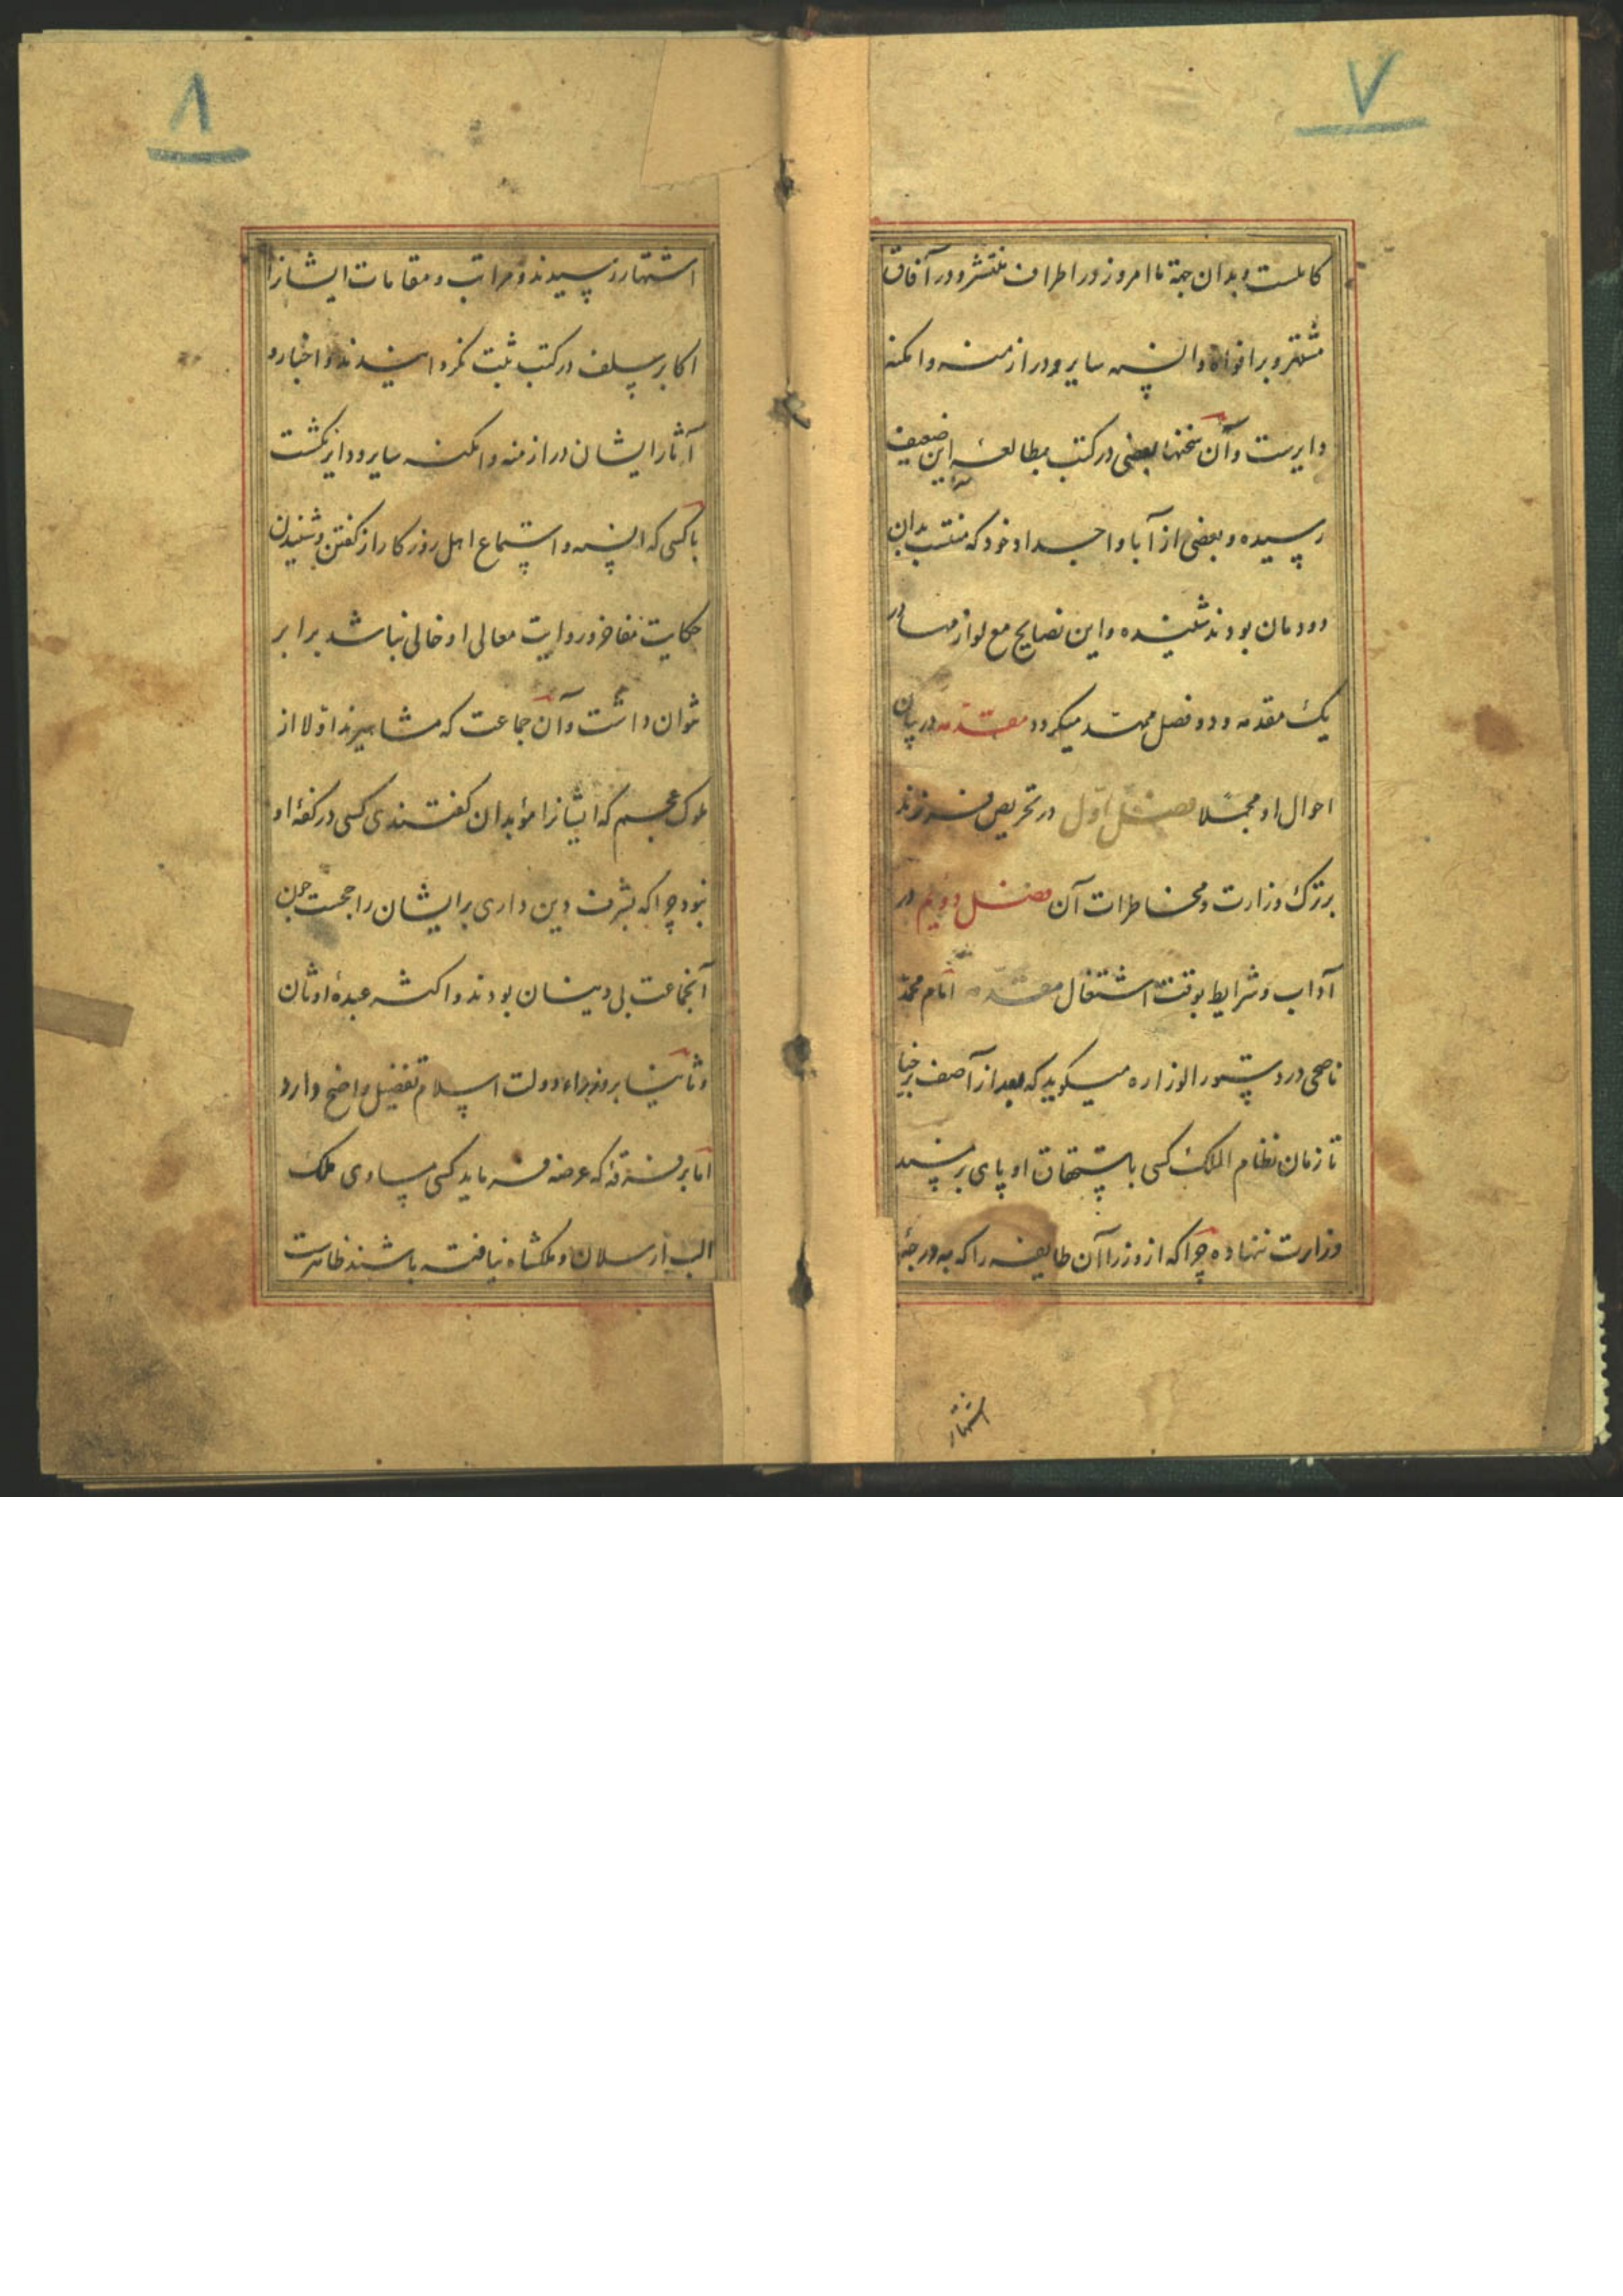 ۷
کاملست و بدان جهة تا امروز در اطراف منتشر و در آفاق
مشتهر و بر افواه و السنه سایر و در ازمنه و امکنه
دایرست و آن سخنها بعضی در کتب بمطالعهٔ این ضعیف
رسیده و بعضی از آبا و اجداد خود که منتسب بدان
دودمان بودند شنیده و این نصایح مع لوازمها در
یک مقدمه و دو فصل ممهد میکردد مقدمه در بیان
احوال او مجملا فصل اول در تحریص فرزند
بر ترک وزارت و مخاطرات آن فصل دویم در
آداب و شرایط بوقت اشتغال مقدمه امام محمد
ناصحی در دستور الوزاره میکوید که بعد از آصف برخیا
تا زمان نظام الملک کسی باستحقاق او پای بر مسند
وزارت ننهاده چرا که از وزرا آن طایفه را که بدرجهٔ
اشتهار
۸
اشتهار رسیدند و مراتب و مقامات ایشانرا
اکابر سلف در کتب ثبت کردانیدند و اخبار و
آثار ایشان در ازمنه و امکنه سایر و دایر کشت
با کسی که السنه و استماع اهل روزکار از کفتن و شنیدن
حکایت مفاخر و روایت معالی او خالی نباشد برابر
نتوان داشت و آن جماعت که مشاهیرند اولا از
ملوک عجم که ایشانرا مؤبدان کفتندی کسی در کفهٔ او
نبود چرا که بشرف دین داری بر ایشان راجحست چون
آنجماعت بی دینان بودند و اکثر عبدهٔ اوثان
و ثانیا بر وزراء دولت اسلام تفضیل واضح دارد
اما بر فرقهٔ که عرضه فرماید کسی مساوی ملک
الب ارسلان و ملکشاه نیافته باشند ظاهرست